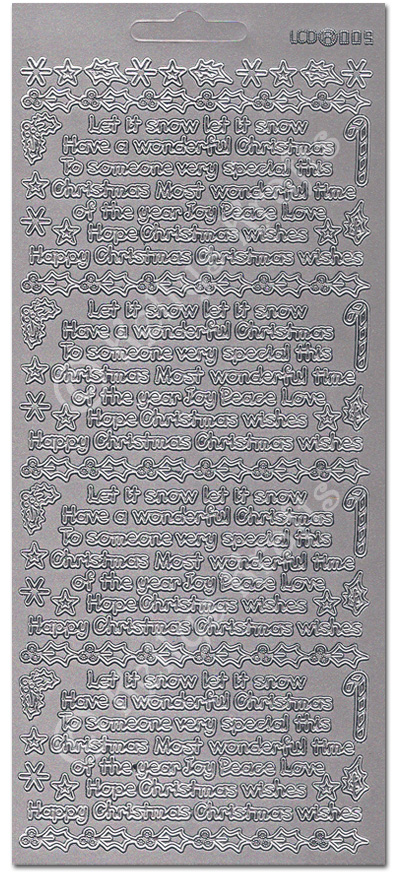 LCD 005
Let it snow let it snow
Have a wonderful Christmas
To someone very special this
Christmas Most wonderful time
of the year Joy Peace Love
Hope Christmas wishes
Happy Christmas Christmas wishes
Let it snow let it snow
Have a wonderful Christmas
To someone very special this
Christmas Most wonderful time
of the year Joy Peace Love
Hope Christmas wishes
Happy Christmas Christmas wishes
Let it snow let it snow
Have a wonderful Christmas
To someone very special this
Christmas Most wonderful time
of the year Joy Peace Love
Hope Christmas wishes
Happy Christmas Christmas wishes
Let it snow let it snow
Have a wonderful Christmas
To someone very special this
Christmas Most wonderful time
of the year Joy Peace Love
Hope Christmas wishes
Happy Christmas Christmas wishes